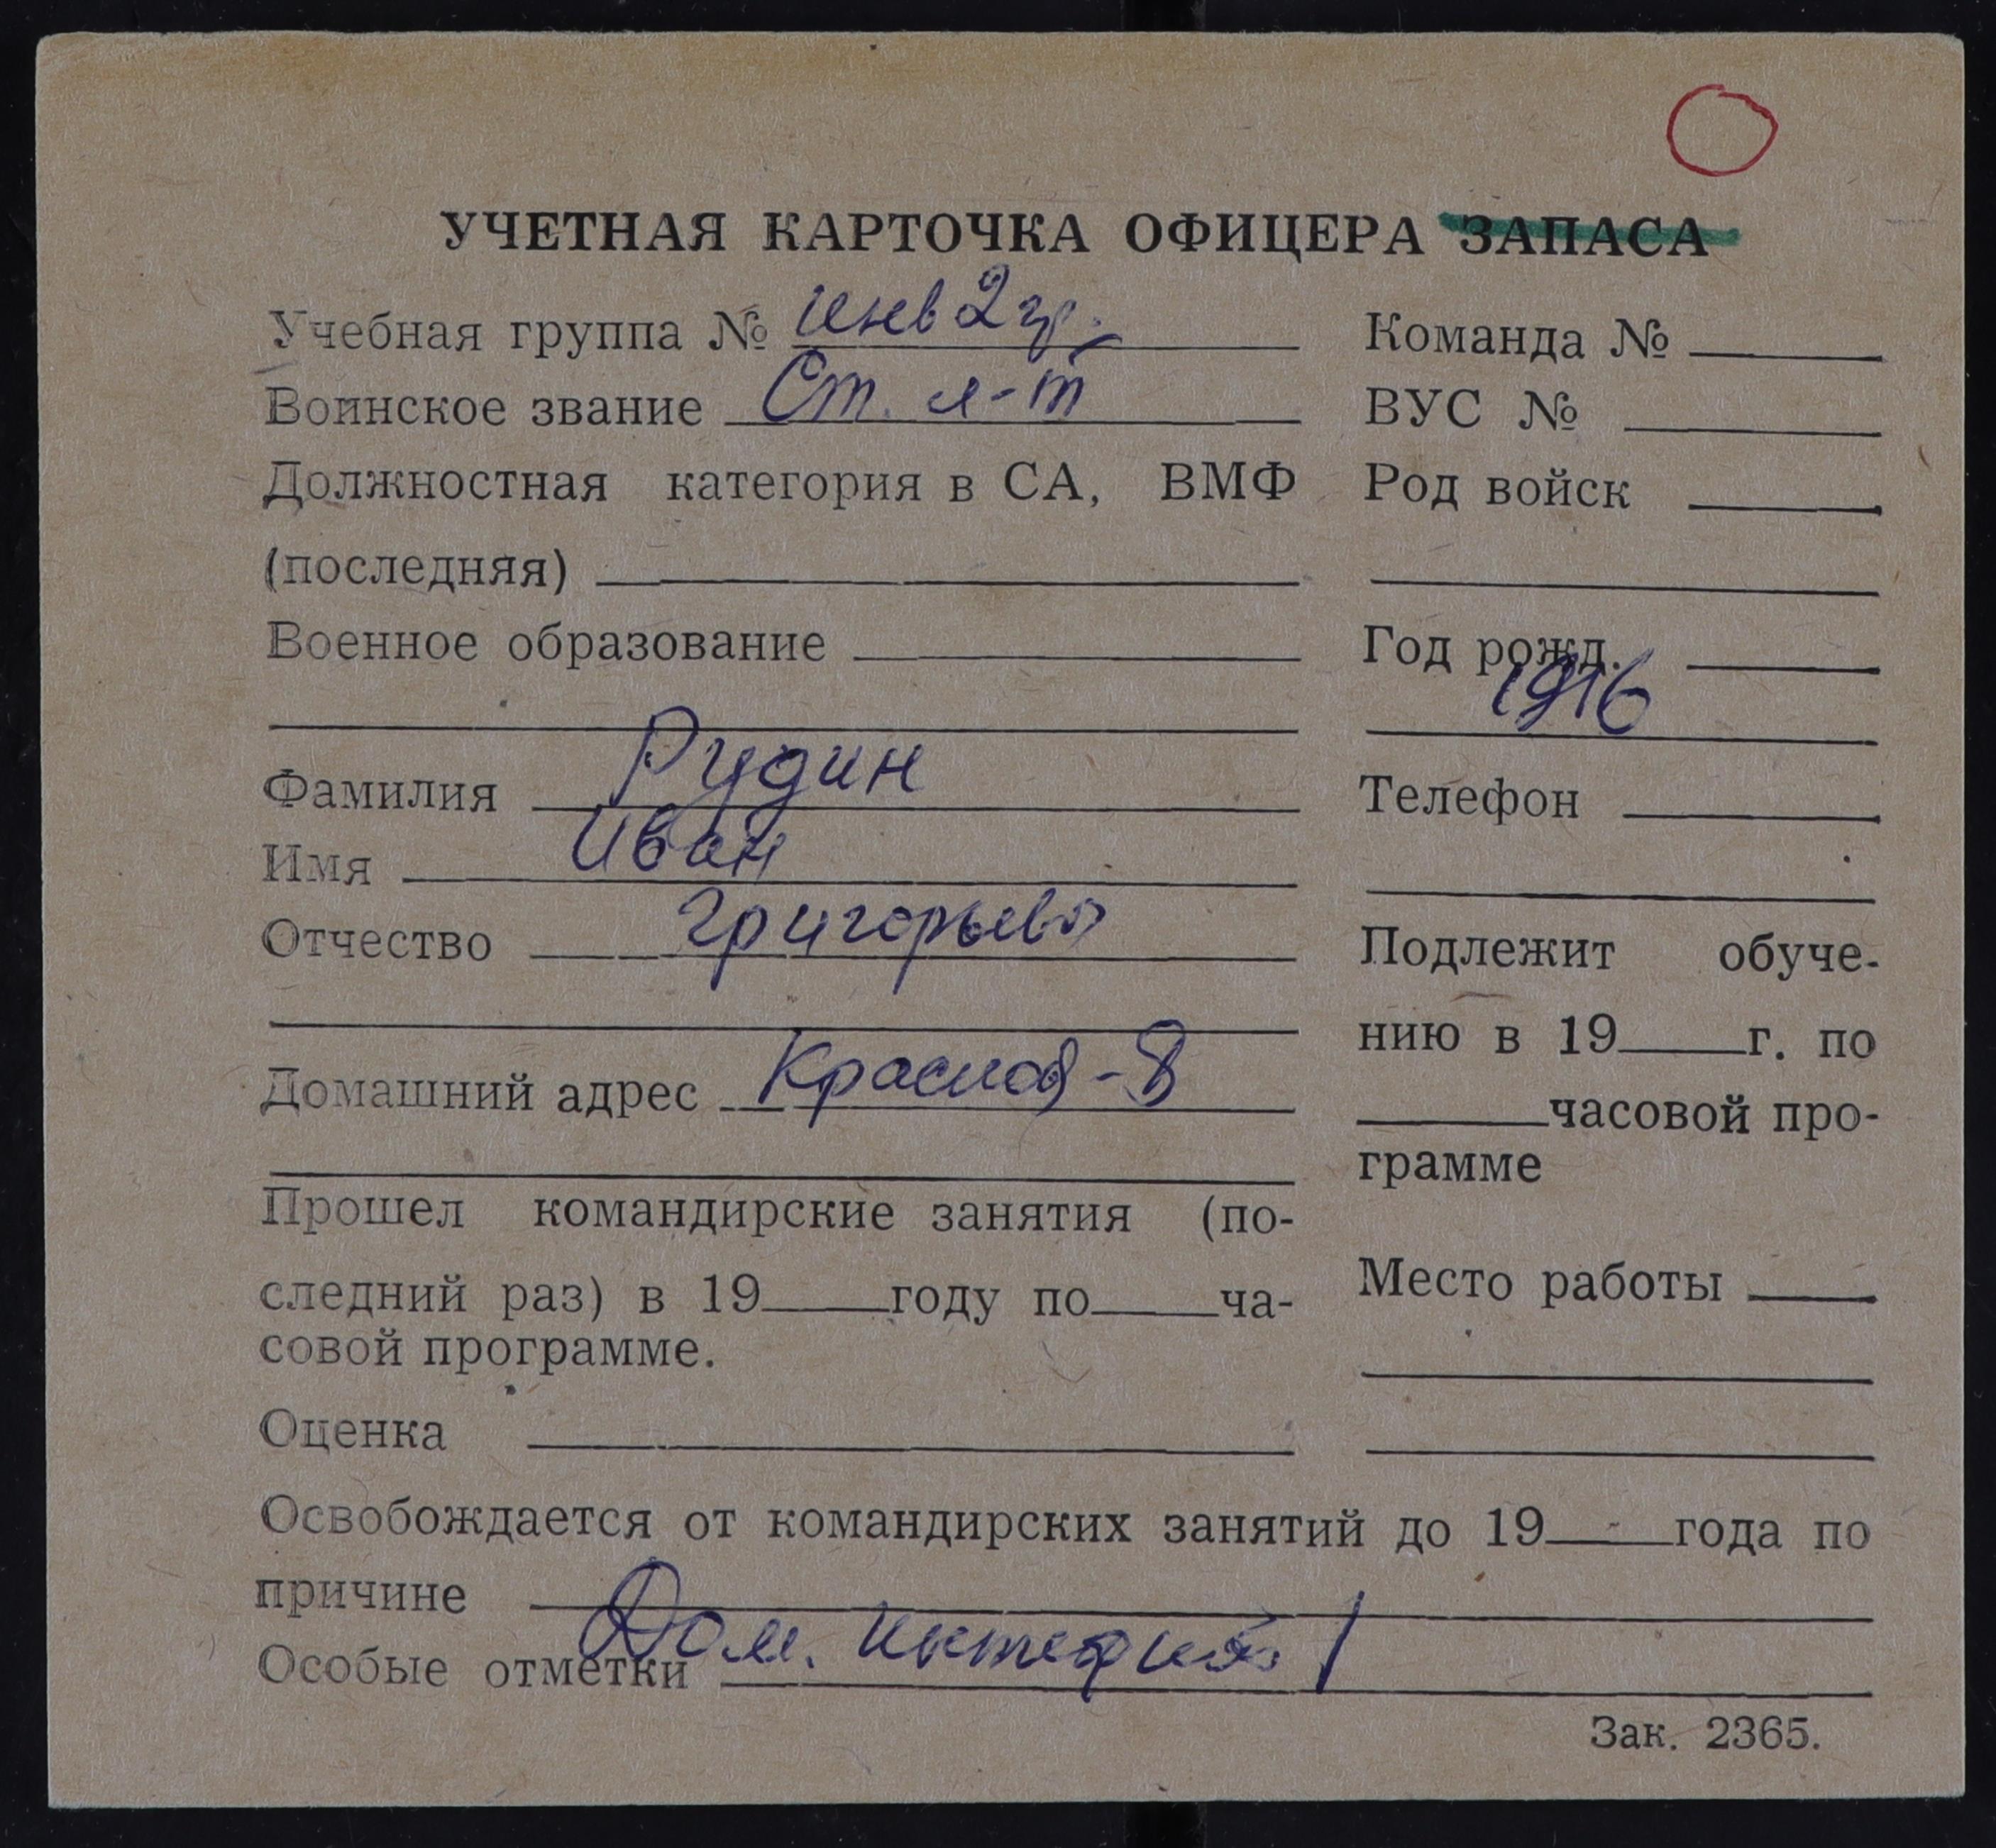 УЧЕТНАЯ КАРТОЧКА ОФИЦЕРА ЗАПАСА
Учебная группа № инв 2 гр.
Воинское звание Ст. л-т
Должностная категория в СА, ВМФ
(последняя)
Военное образование
Фамилия Рудин
Имя Иван
Отчество Григорьев
Домашний адрес
Прошел командирские занятия (по-
следний раз) в 19 году по ча-
совой программе.
Оценка
Команда №
ВУС №
Род войск
Год рожд.
1916
Телефон
Подлежит обуче-
нию в 19 г. по
часовой про-
грамме
Место работы
Освобождается от командирских занятий до 19 года по
причине
Особые отметки Дом.
Зак. 2365.